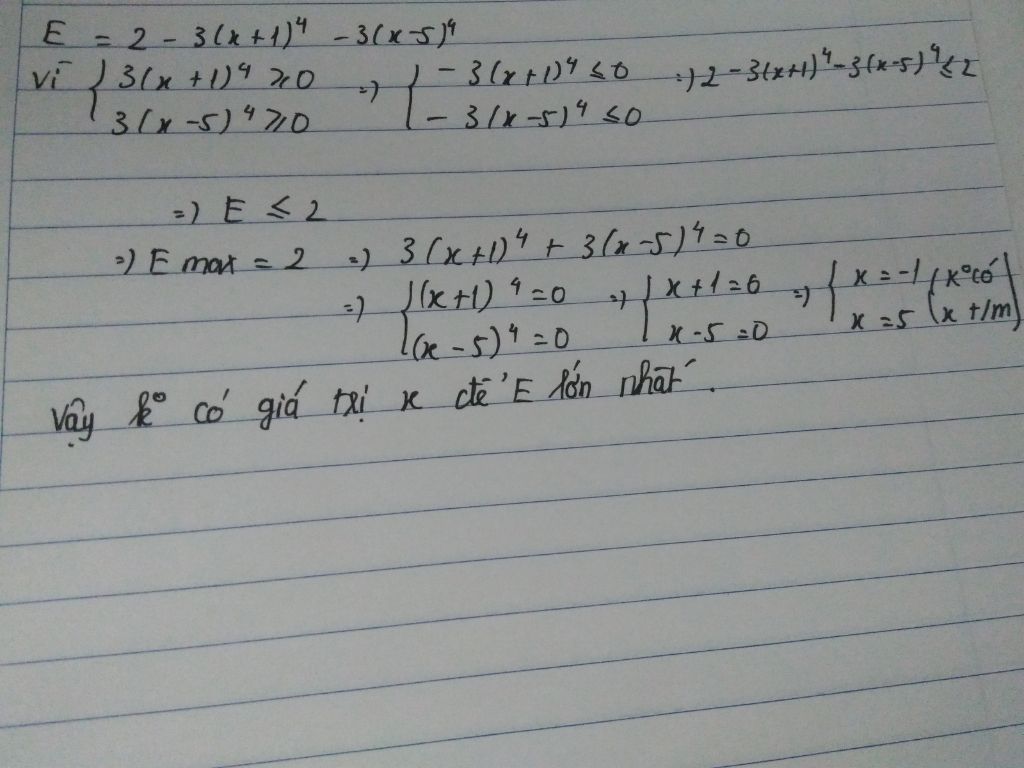 E = 2 - 3(x+1)⁴ - 3(x-5)⁴
Vì { 3(x+1)⁴ ≥ 0 => { -3(x+1)⁴ ≤ 0 => 2 - 3(x+1)⁴ - 3(x-5)⁴ ≤ 2
3(x-5)⁴ ≥ 0 - 3(x-5)⁴ ≤ 0
=> E ≤ 2
=> E max = 2 => 3(x+1)⁴ + 3(x-5)⁴ = 0
=> { (x+1)⁴ = 0 => { x+1 = 0 => { x = -1 (k° có)
(x-5)⁴ = 0 x-5 = 0 x = 5 (x t/m)
Vậy k° có giá trị x để E lớn nhất.